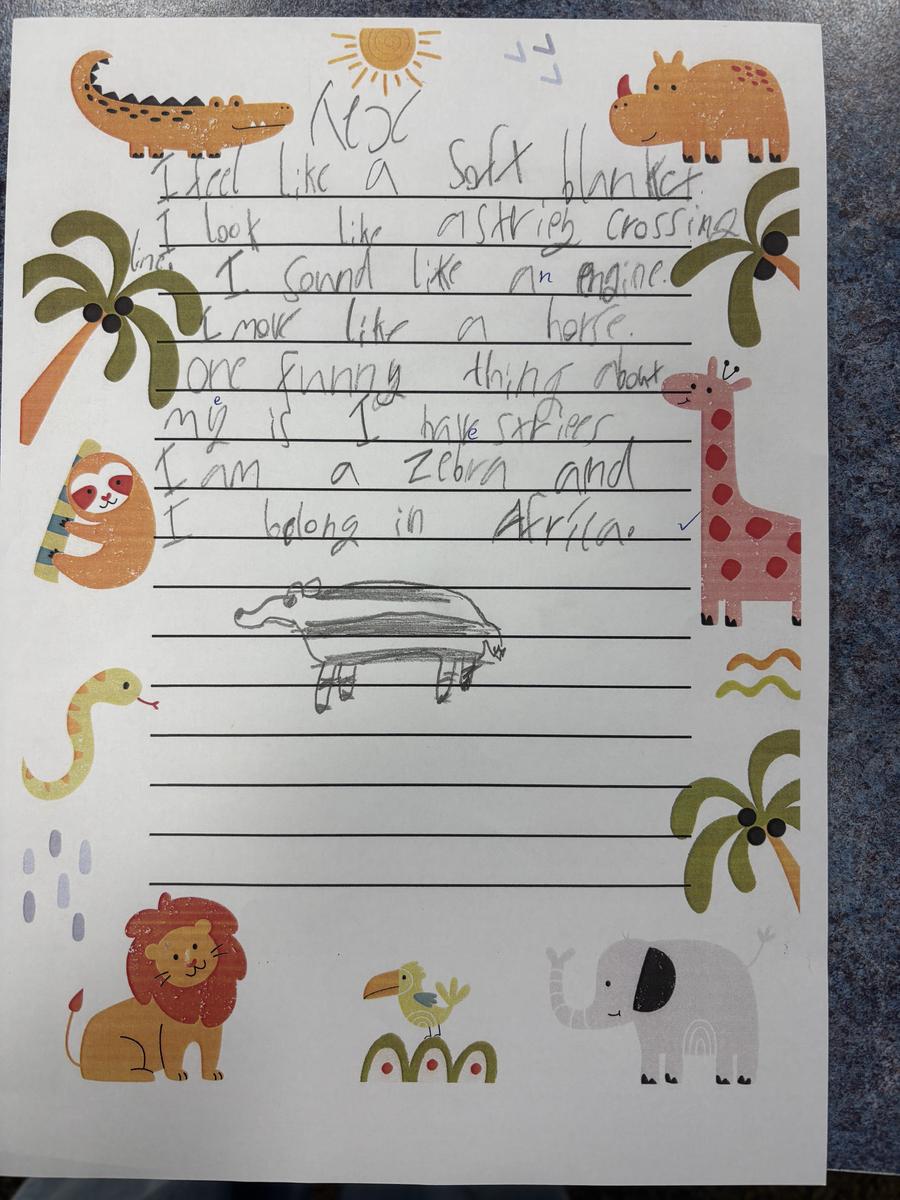 I feel like a soft blanket.
I look like a strieg crossing
line. I sound like an engine.
I move like a horse.
one funny thing about
me is I have striees
I am a zebra and
I belong in Africa.